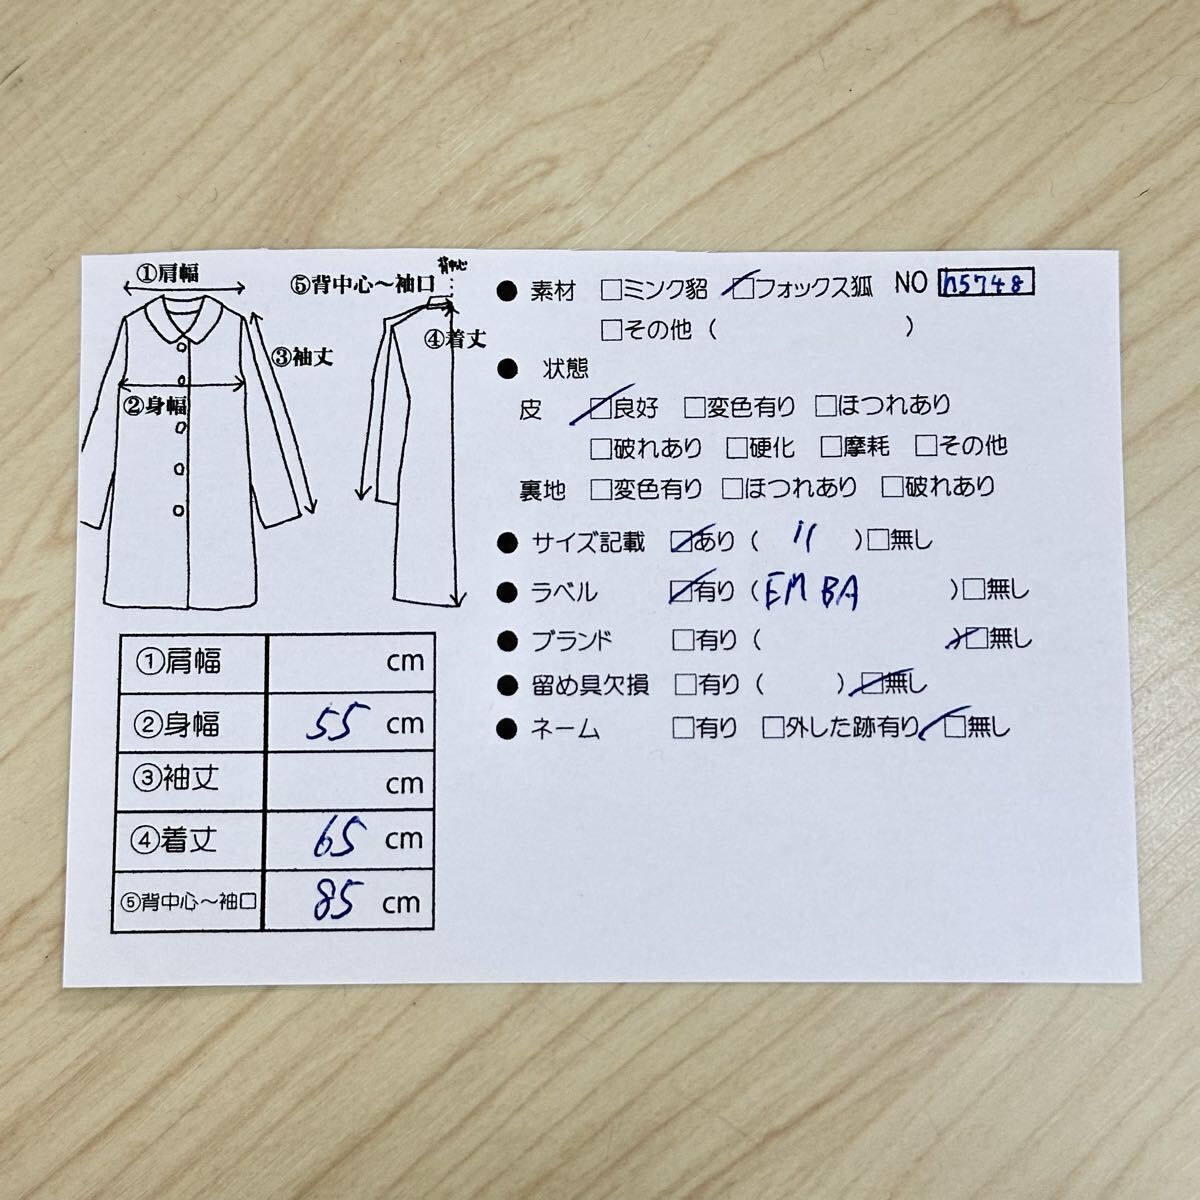 ①肩幅
⑤背中心～袖口
背中心
③袖丈
④着丈
②身幅
①肩幅 cm
②身幅 55 cm
③袖丈 cm
④着丈 65 cm
⑤背中心～袖口 85 cm
● 素材 □ミンク貂 □フォックス狐 NO h5748
□その他 ( )
● 状態
皮 □良好 □変色有り □ほつれあり
□破れあり □硬化 □摩耗 □その他
裏地 □変色有り □ほつれあり □破れあり
● サイズ記載 □あり ( 11 ) □無し
● ラベル □有り ( EMBA ) □無し
● ブランド □有り ( ) □無し
● 留め具欠損 □有り ( ) □無し
● ネーム □有り □外した跡有り □無し